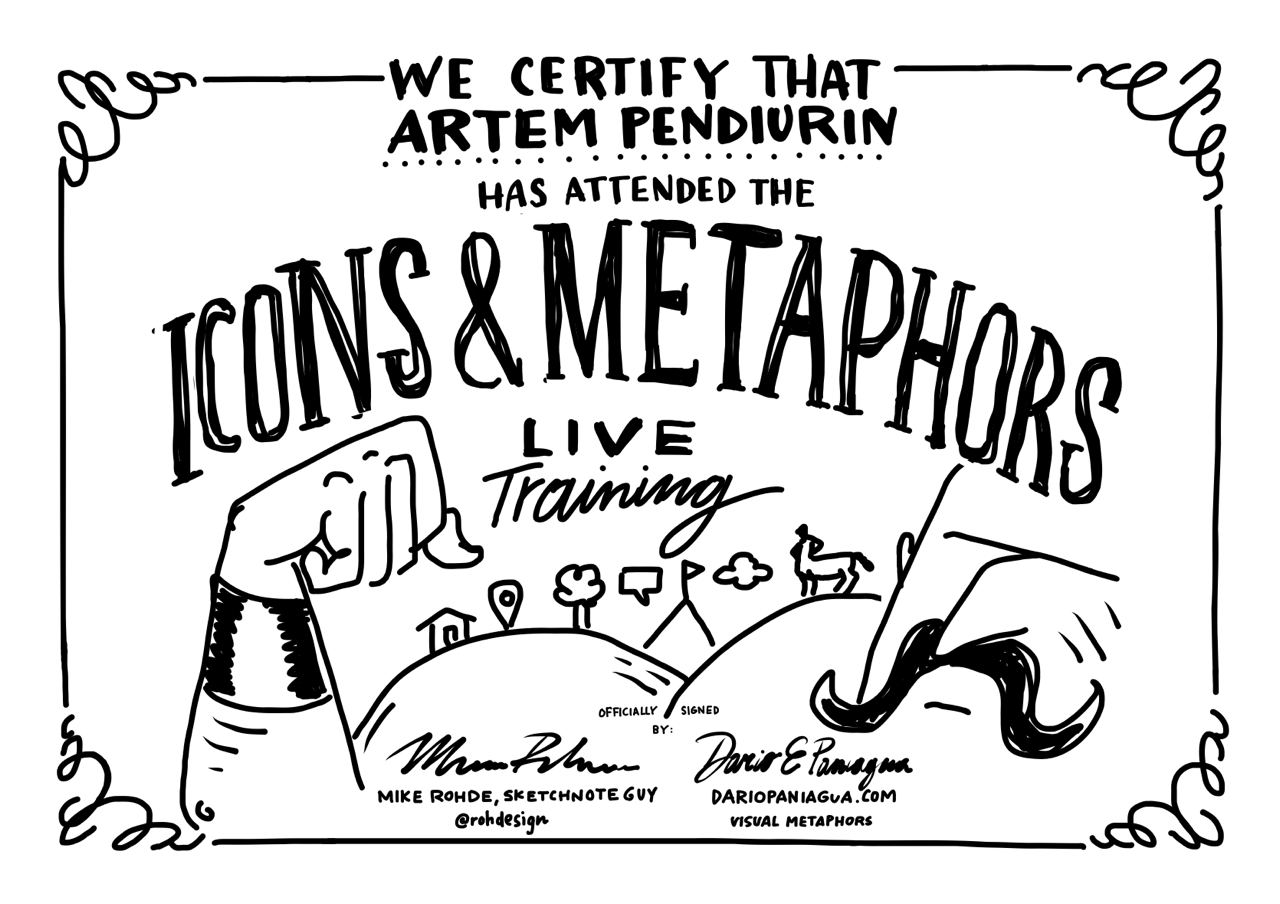 WE CERTIFY THAT
ARTEM PENDIURIN
HAS ATTENDED THE
ICONS & METAPHORS
LIVE
Training
OFFICIALLY SIGNED
BY:
Dario E Paniagua
MIKE ROHDE, SKETCHNOTE GUY
@rohdesign
DARIOPANIAGUA.COM
VISUAL METAPHORS